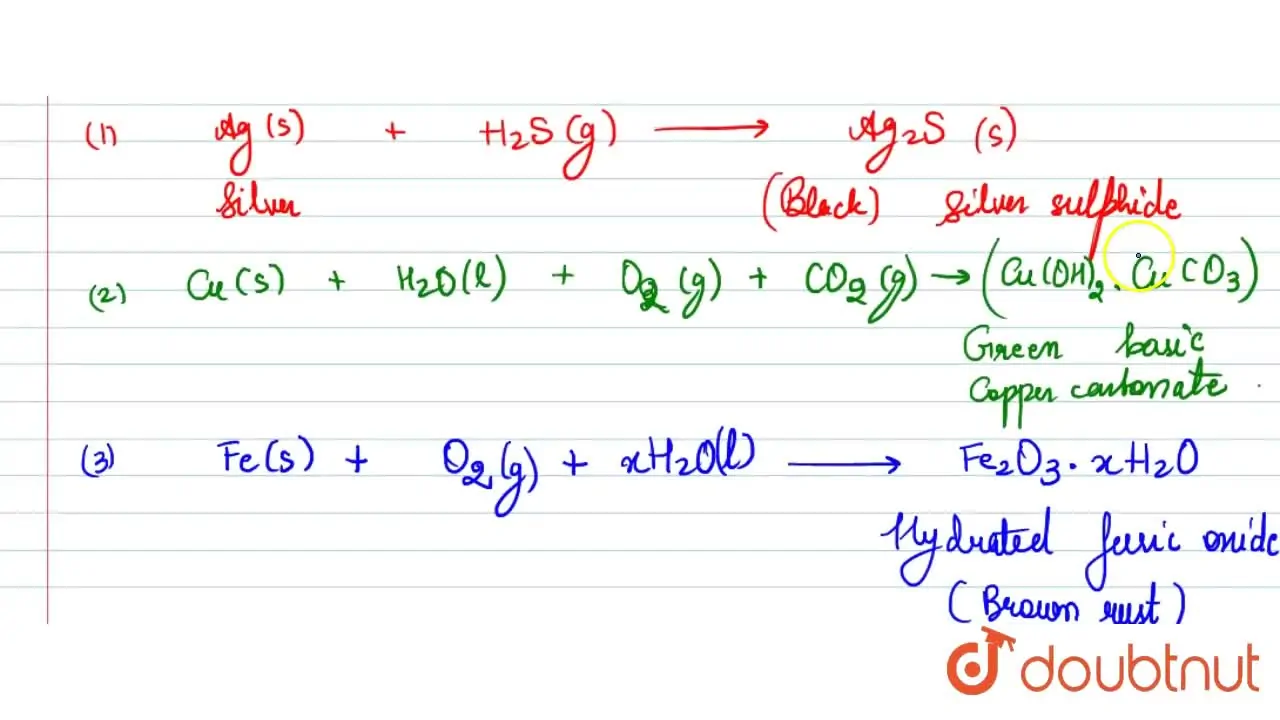 (1) Ag (s) + H₂S (g) ⟶ Ag₂S (s)
Silver (Black) Silver sulphide
(2) Cu (s) + H₂O (l) + O₂ (g) + CO₂ (g) → (Cu(OH)₂. CuCO₃)
Green basic
Copper carbonate
(3) Fe (s) + O₂ (g) + xH₂O(l) ⟶ Fe₂O₃ . xH₂O
Hydrated ferric oxide
(Brown rust)
doubtnut